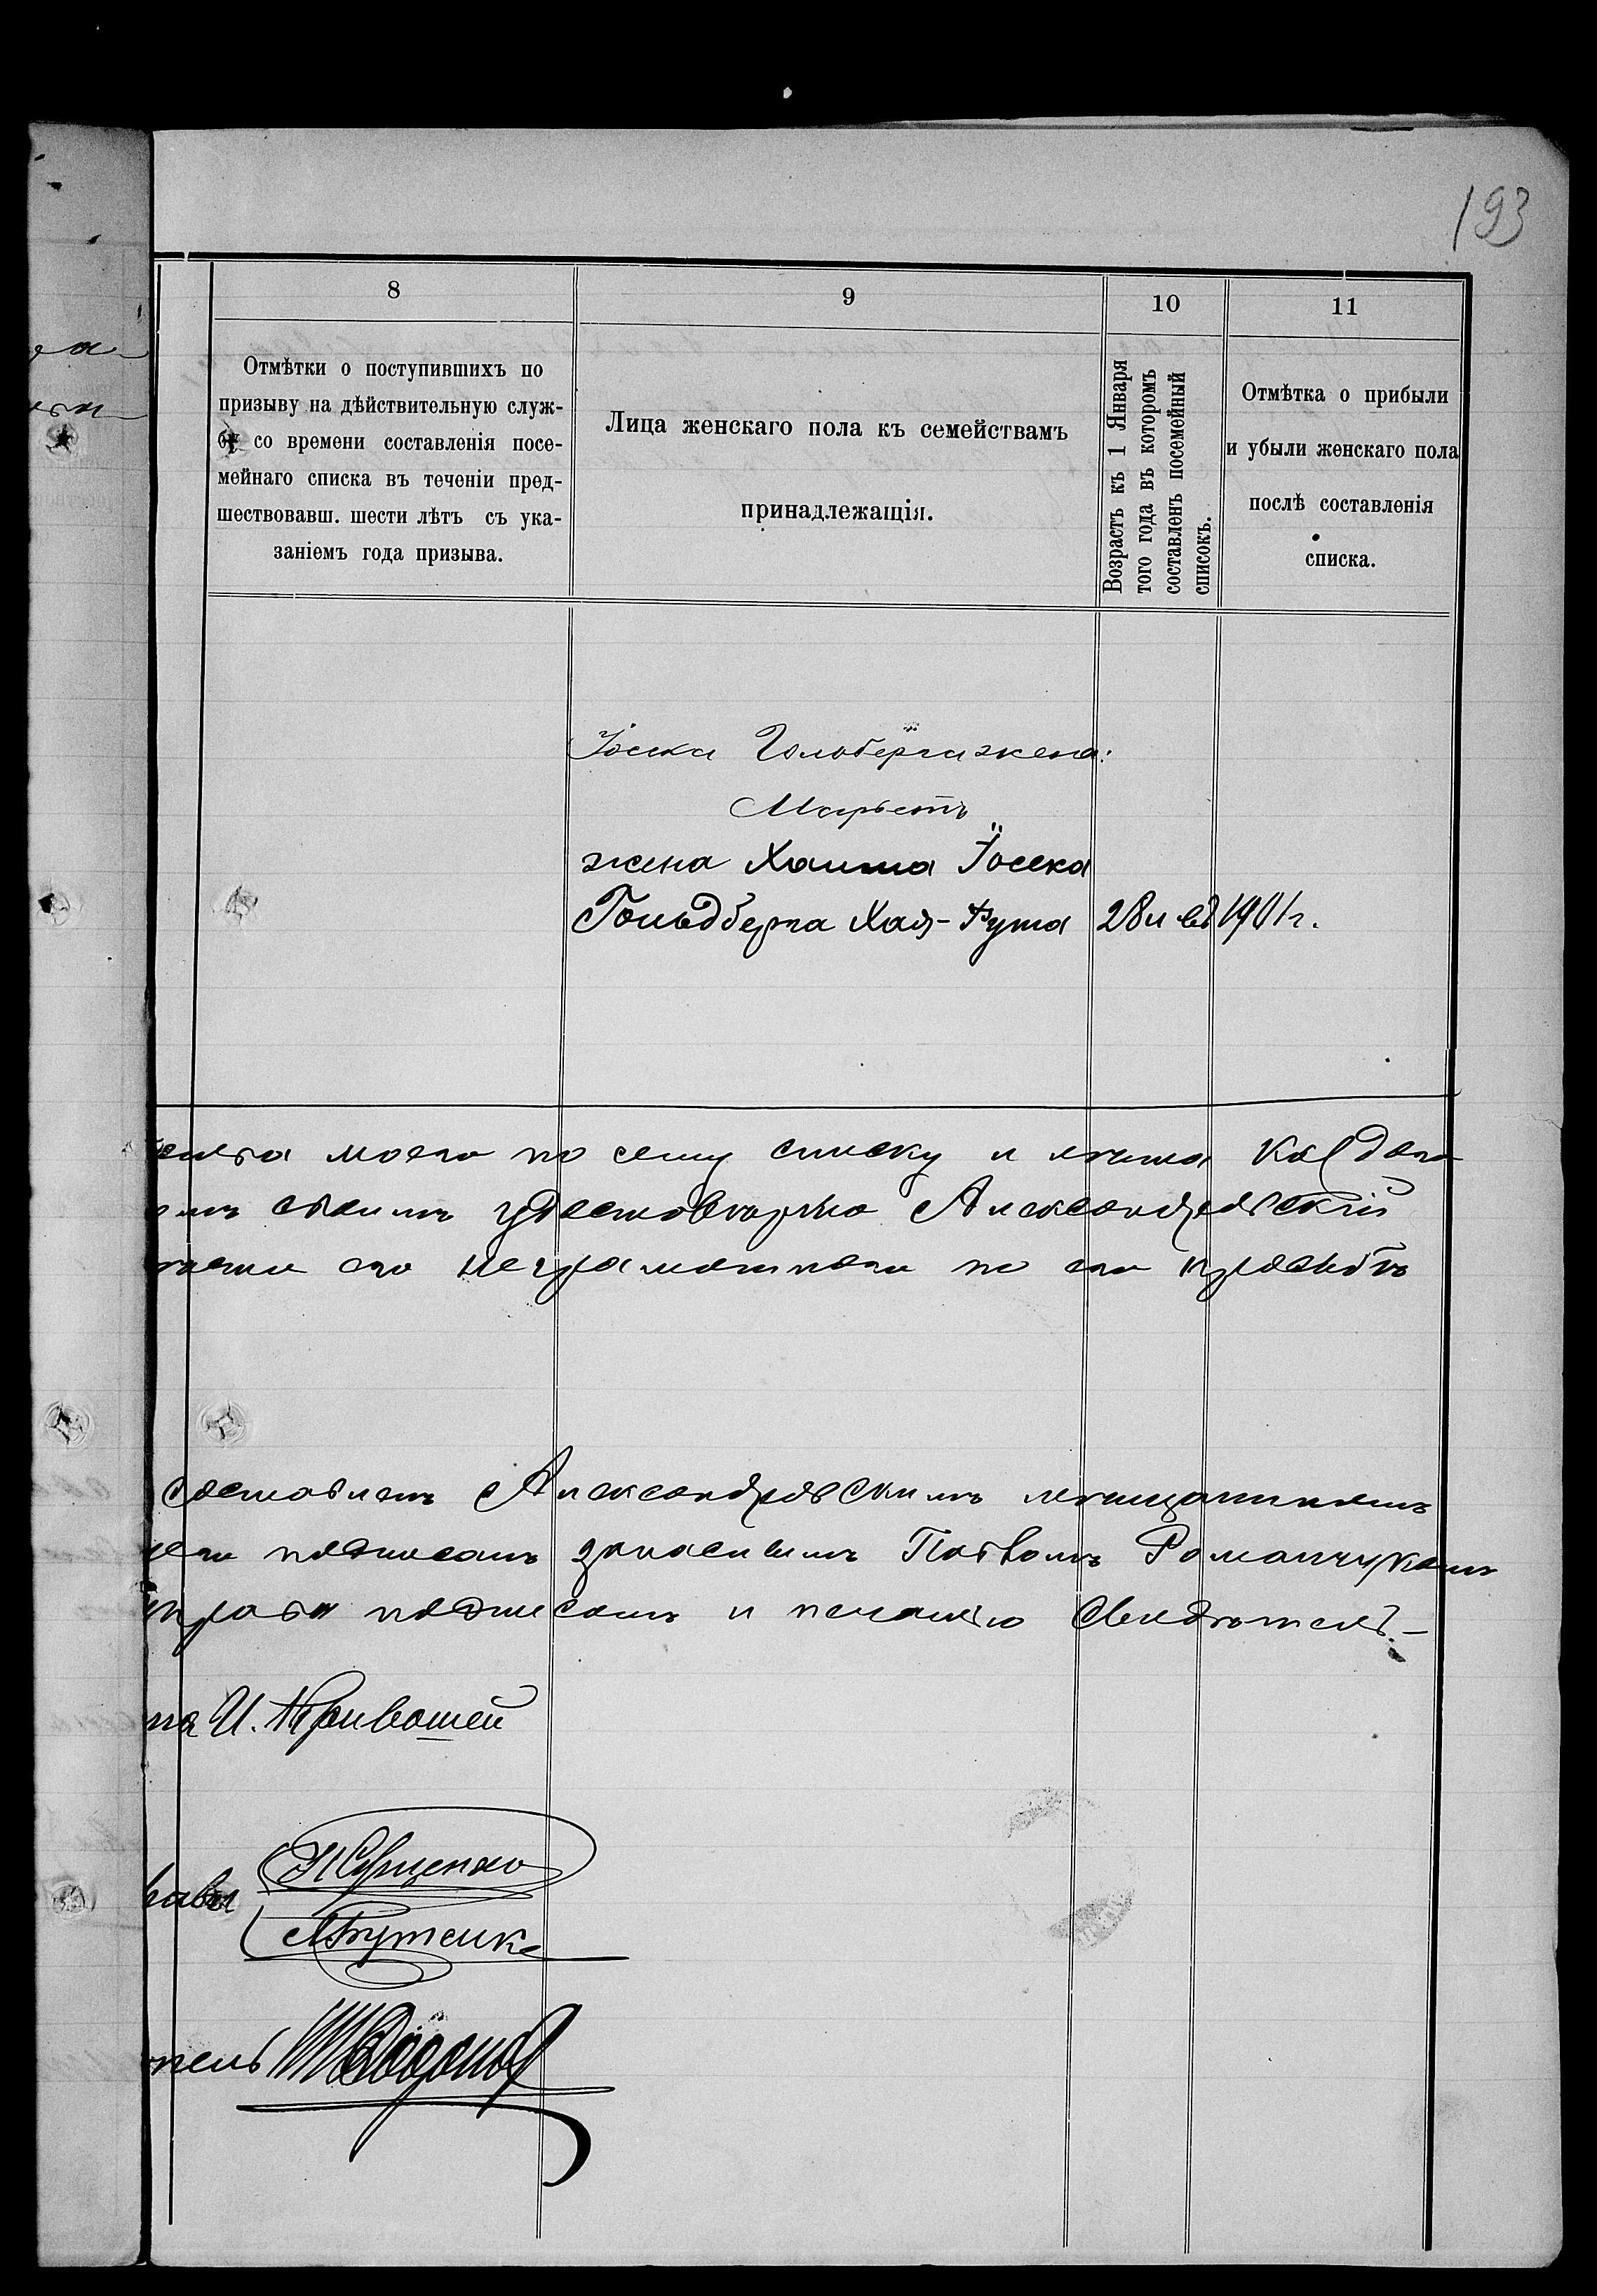 193
8
9
10
11
Отмѣтки о поступившихъ по
призыву на дѣйствительную служ-
бу со времени составленія посе-
мейнаго списка въ теченіи пред-
шествовавш. шести лѣтъ съ ука-
заніемъ года призыва.
Лица женскаго пола къ семействамъ
принадлежащія.
Возрастъ къ 1 Января
того года въ которомъ
составленъ посемейный
списокъ.
Отмѣтка о прибыли
и убыли женскаго пола
послѣ составленія
списка.
Іоська жена:
Марьетъ
жена Хаима Іосека
Гольдберга Хая-Рума 28 л въ 1901 г.
моего по сему списку и лѣта каждаго
удостовѣряю Александровскій
его неграмотнаго по его просьбѣ
составленъ Александровскимъ мѣщаниномъ
подписанъ запаснымъ Павломъ Романчукомъ
подписомъ и печатью Свидѣтель.—
на И. Кривошей
тель